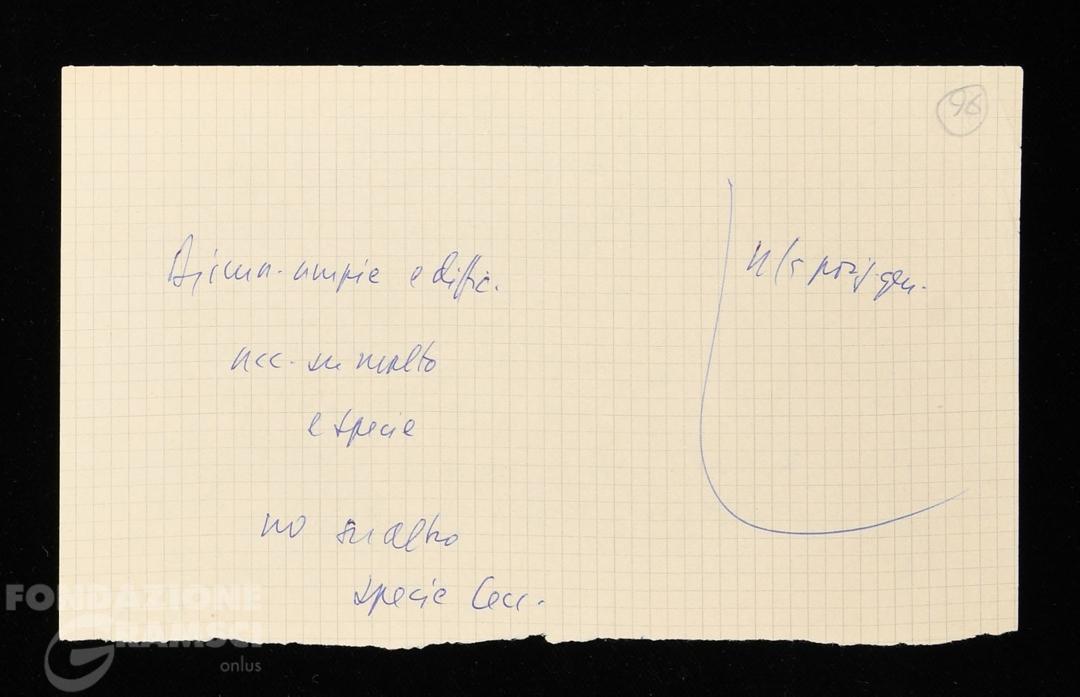 96
Discuss. ampie e diffic.
acc. su molto
e specie
no su altro
specie Cecc.
N/s posiz. gen.
FONDAZIONE
GRAMSCI
onlus